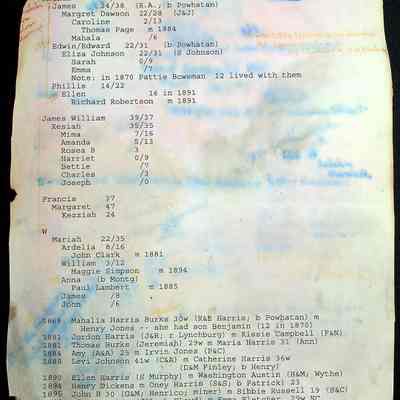 James 34/38 (R.A.; b Powhatan)
Margret Dawson 22/28 (J&J)
Caroline 2/13
Thomas Page m 1884
Mahala /6
Edwin/Edward 22/31 (b Powhatan)
Eliza Johnson 22/31 (S Johnson)
Sarah 0/9
Emma /7
Note: in 1870 Pattie Bowsman 12 lived with them
Phillis 14/22
Ellen 16 in 1891
Richard Robertson m 1891
James William 39/37
Kesiah 35/35
Mima 7/16
Amanda 5/13
Rosea B 3
Harriet 0/9
Bettie /7
Charles /3
Joseph /0
Francis 37
Margaret 47
Kezziah 24
W
Mariah 22/35
Ardelia 8/16
John Clark m 1881
William 3/12
Maggie Simpson m 1894
Anna (b Montg)
Paul Lambert m 1885
James /8
John /6
1868 Mahalia Harris Burks 30w (R&E Harris; b Powhatan) m
Henry Jones -- she had son Benjamin (12 in 1870)
1881 Jordon Harris (J&R; r Lynchburg) m Kissie Campbell (P&N)
1881 Thomas Burks (Jeremiah) 29w m Maria Harris 31 (Ann)
1884 Amy (A&A) 25 m Irvin Jones (P&C)
1888 Levi Johnson 41w (C&A) m Catherine Harris 36w
(D&M Finley; b Henry)
1890 Ellen Harris (S Murphy) m Washington Austin (H&M; Wythe)
1894 Henry Dickens m Oney Harris (S&S; b Patrick) 23
1895 John R 30 (G&M; Henrico; miner) m Bibbie Russell 19 (B&C)